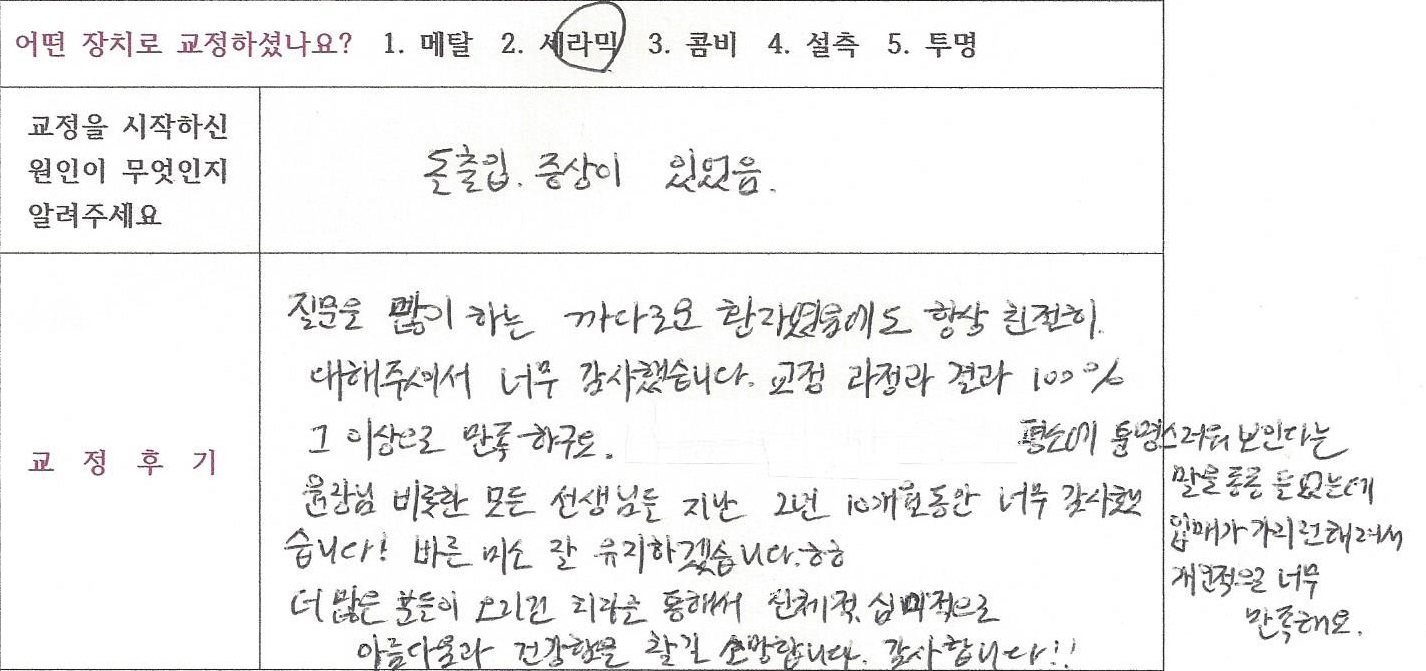 어떤 장치로 교정하셨나요? 1. 메탈 2. 세라믹 3. 콤비 4. 설측 5. 투명
교정을 시작하신
원인이 무엇인지
알려주세요
돌출입. 증상이 있었음.
교 정 후 기
질문을 많이 하는 까다로운 환자였음에도 항상 친절히.
대해주셔서 너무 감사했습니다. 교정 과정과 결과 100%
그 이상으로 만족하구요.
원장님 비롯한 모든 선생님들 지난 2년 10개월동안 너무 감사했
습니다! 바른 미소 잘 유지하겠습니다.ㅎㅎ
더 많은 분들이 오리진 치과를 통해서 신체적, 심미적으로
아름다움과 건강함을 찾길 소망합니다. 감사합니다!!
평소에 퉁명스러워 보인다는
말을 종종 들었는데
입매가 가지런해져서
개인적으로 너무
만족해요.